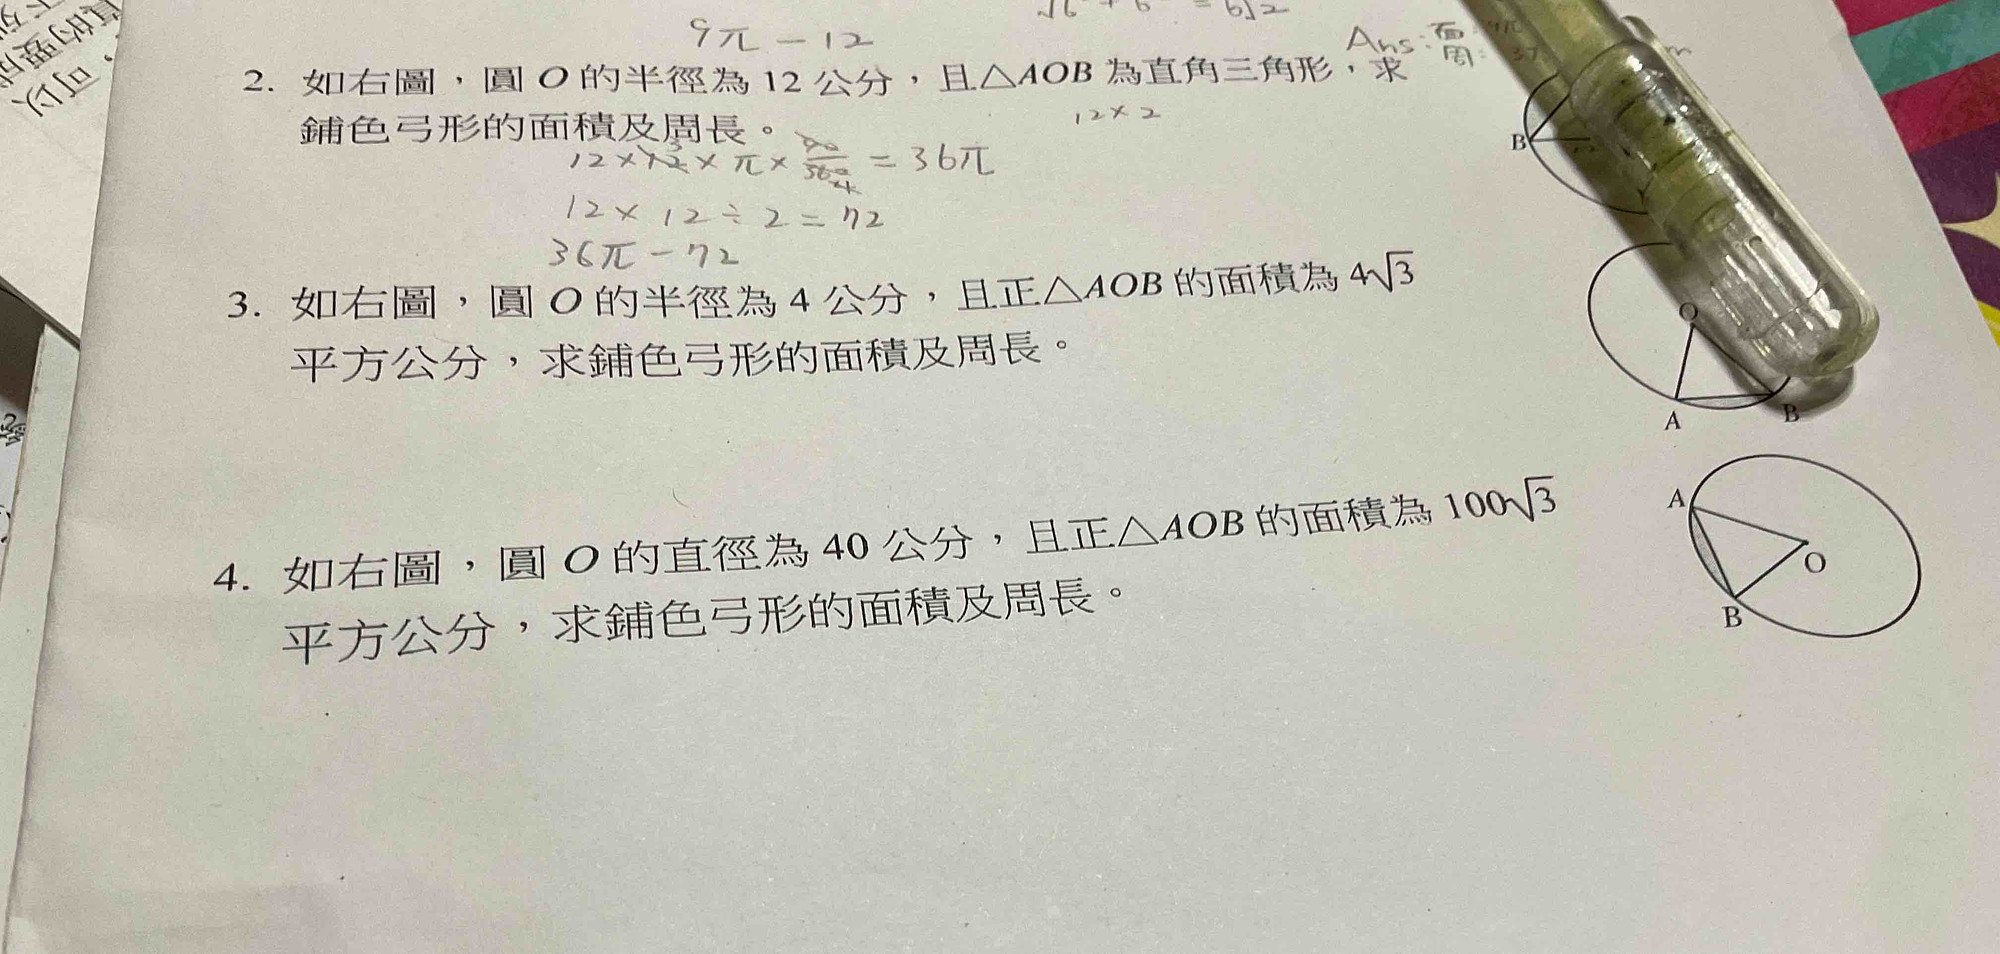 9π - 12
= 6√2
Ans: 面:
周: 3
2. 如右圖，圓 O 的半徑為 12 公分，且△AOB 為直角三角形，求
鋪色弓形的面積及周長。
12×2
12×12×π×90/360 = 36π
12×12÷2=72
36π-72
B
3. 如右圖，圓 O 的半徑為 4 公分，且正△AOB 的面積為 4√3
平方公分，求鋪色弓形的面積及周長。
O
A B
4. 如右圖，圓 O 的直徑為 40 公分，且正△AOB 的面積為 100√3
平方公分，求鋪色弓形的面積及周長。
A
O
B
，可以